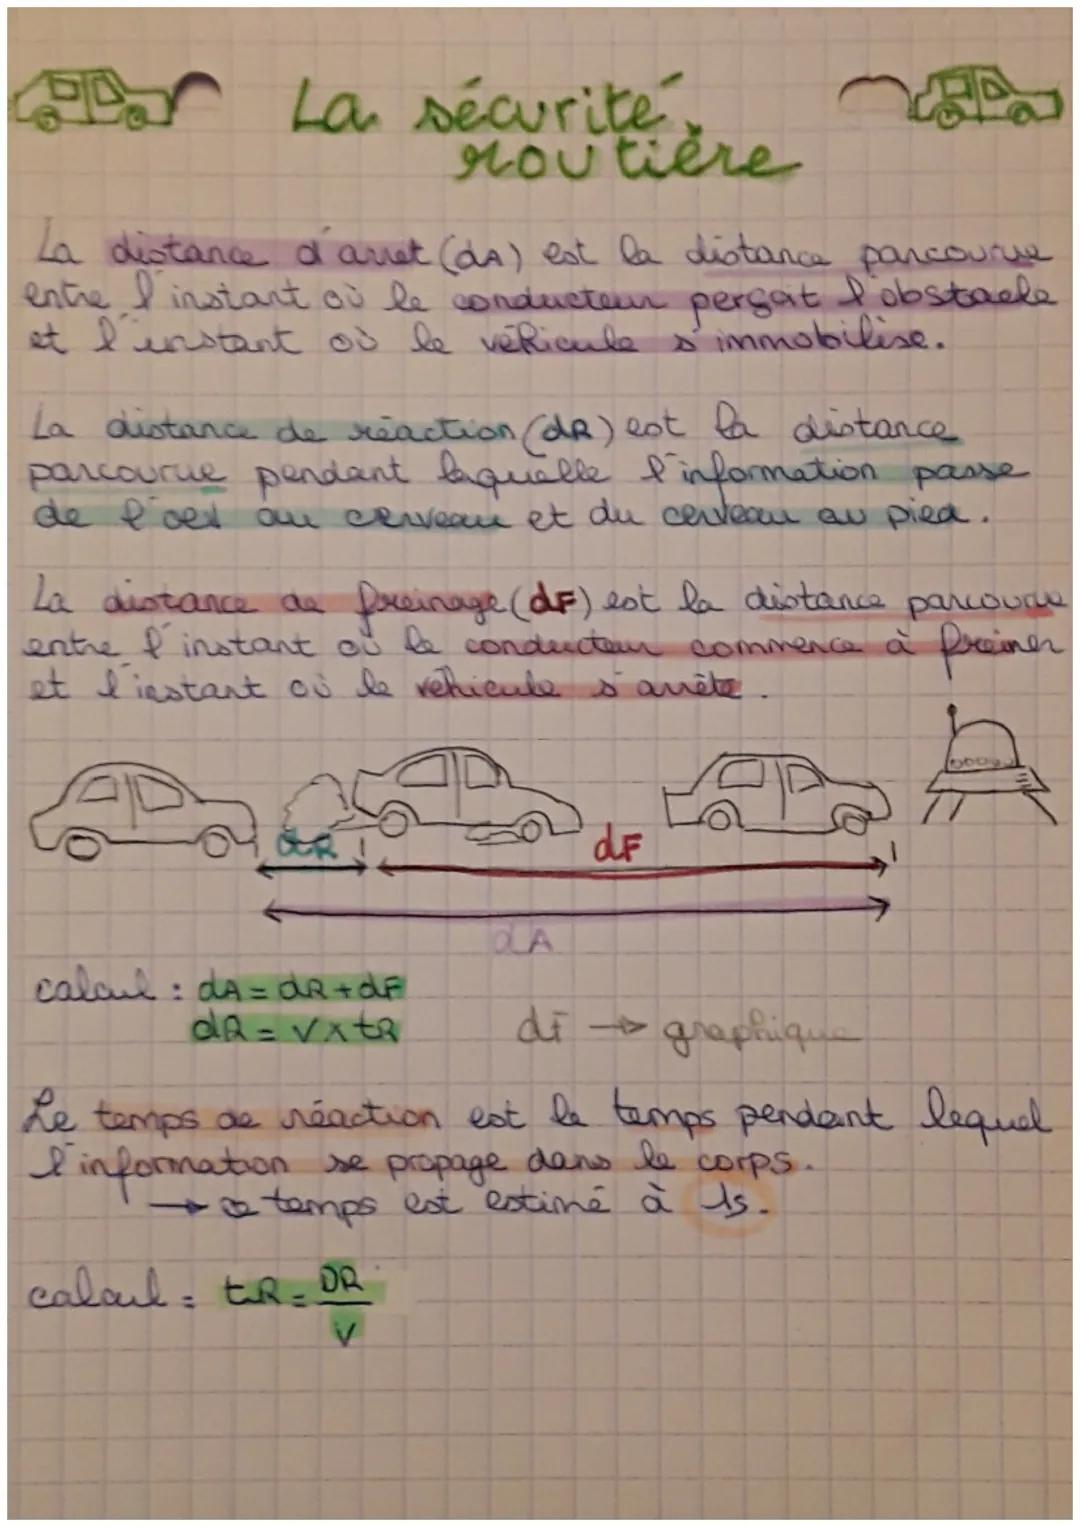 La sécurité
routière
La distance d'arret (dA) est la distance parcourue
entre l'instant où le conducteur perçoit l'obstacle
et l'instant où le véhicule s'immobilise.
La distance de réaction (dR) est la distance
parcourue pendant laquelle l'information passe
de l'oeil au cerveau et du cerveau au pied.
La distance de freinage (dF) est la distance parcourue
entre l'instant où le conducteur commence à freiner
et l'instant où le véhicule s'arrête.
dR
dF
dA
calcul : dA = dR + dF
dR = V x tR
df → graphique
Le temps de réaction est le temps pendant lequel
l'information se propage dans le corps.
→ ce temps est estimé à 1s.
calcul = tR = DR
V